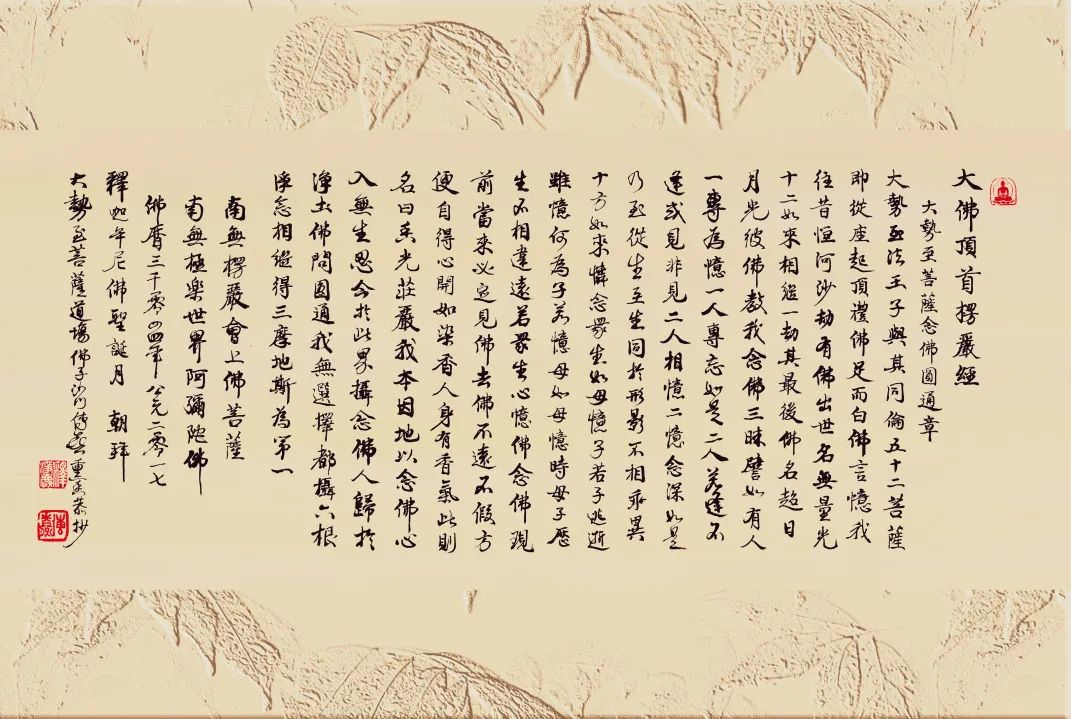 大佛頂首楞嚴經
大勢至菩薩念佛圓通章
大勢至法王子與其同倫五十二菩薩
即從座起頂禮佛足而白佛言憶我
往昔恒河沙劫有佛出世名無量光
十二如來相繼一劫其最後佛名超日
月光彼佛教我念佛三昧譬如有人
一專為憶一人專忘如是二人若逢不
逢或見非見二人相憶二憶念深如是
乃至從生至生同於形影不相乖異
十方如來憐念眾生如母憶子若子逃逝
雖憶何為子若憶母如母憶時母子歷
生不相違遠若眾生心憶佛念佛現
前當來必定見佛去佛不遠不假方
便自得心開如染香人身有香氣此則
名曰香光莊嚴我本因地以念佛心
入無生忍今於此界攝念佛人歸於
淨土佛問圓通我無選擇都攝六根
淨念相繼得三摩地斯為第一
南無楞嚴會上佛菩薩
南無極樂世界阿彌陀佛
佛曆三千零四四年 公元二零一七
釋迦牟尼佛聖誕月 朝拜
大勢至菩薩道場佛子沙門傳喜恭抄